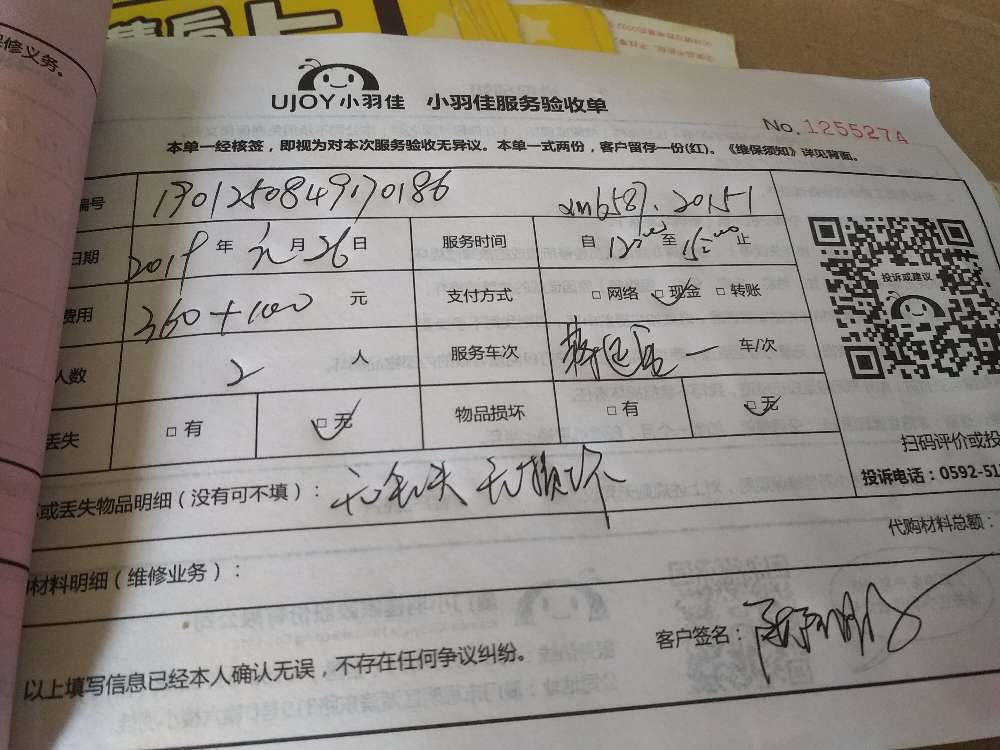 售后卡
修义务。
UJOY小羽佳 小羽佳服务验收单
No. 1255274
本单一经核签,即视为对本次服务验收无异议。本单一式两份,客户留存一份(红)。《维保须知》详见背面。
编号 190125084970186
日期 2019 年 元 月 26 日 服务时间 自 至 止
费用 360+100 元 支付方式 □网络 □现金 □转账
人数 2 人 服务车次 一 车/次
丢失 □有 □无 物品损坏 □有 □无
投诉或建议
扫码评价或投
投诉电话:0592-51
或丢失物品明细(没有可不填): 无丢失 无损坏
代购材料总额:
材料明细(维修业务):
客户签名:
以上填写信息已经本人确认无误,不存在任何争议纠纷。